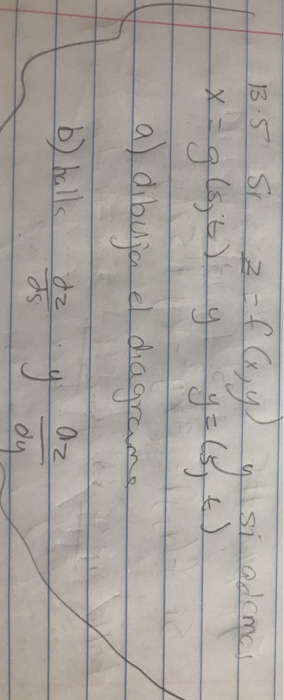 13.5 Si z = f(x,y) y si ademas
x = g(s,t) y y = (s,t)
a) dibuja el diagrama
b) halla dz/ds y dz/dy